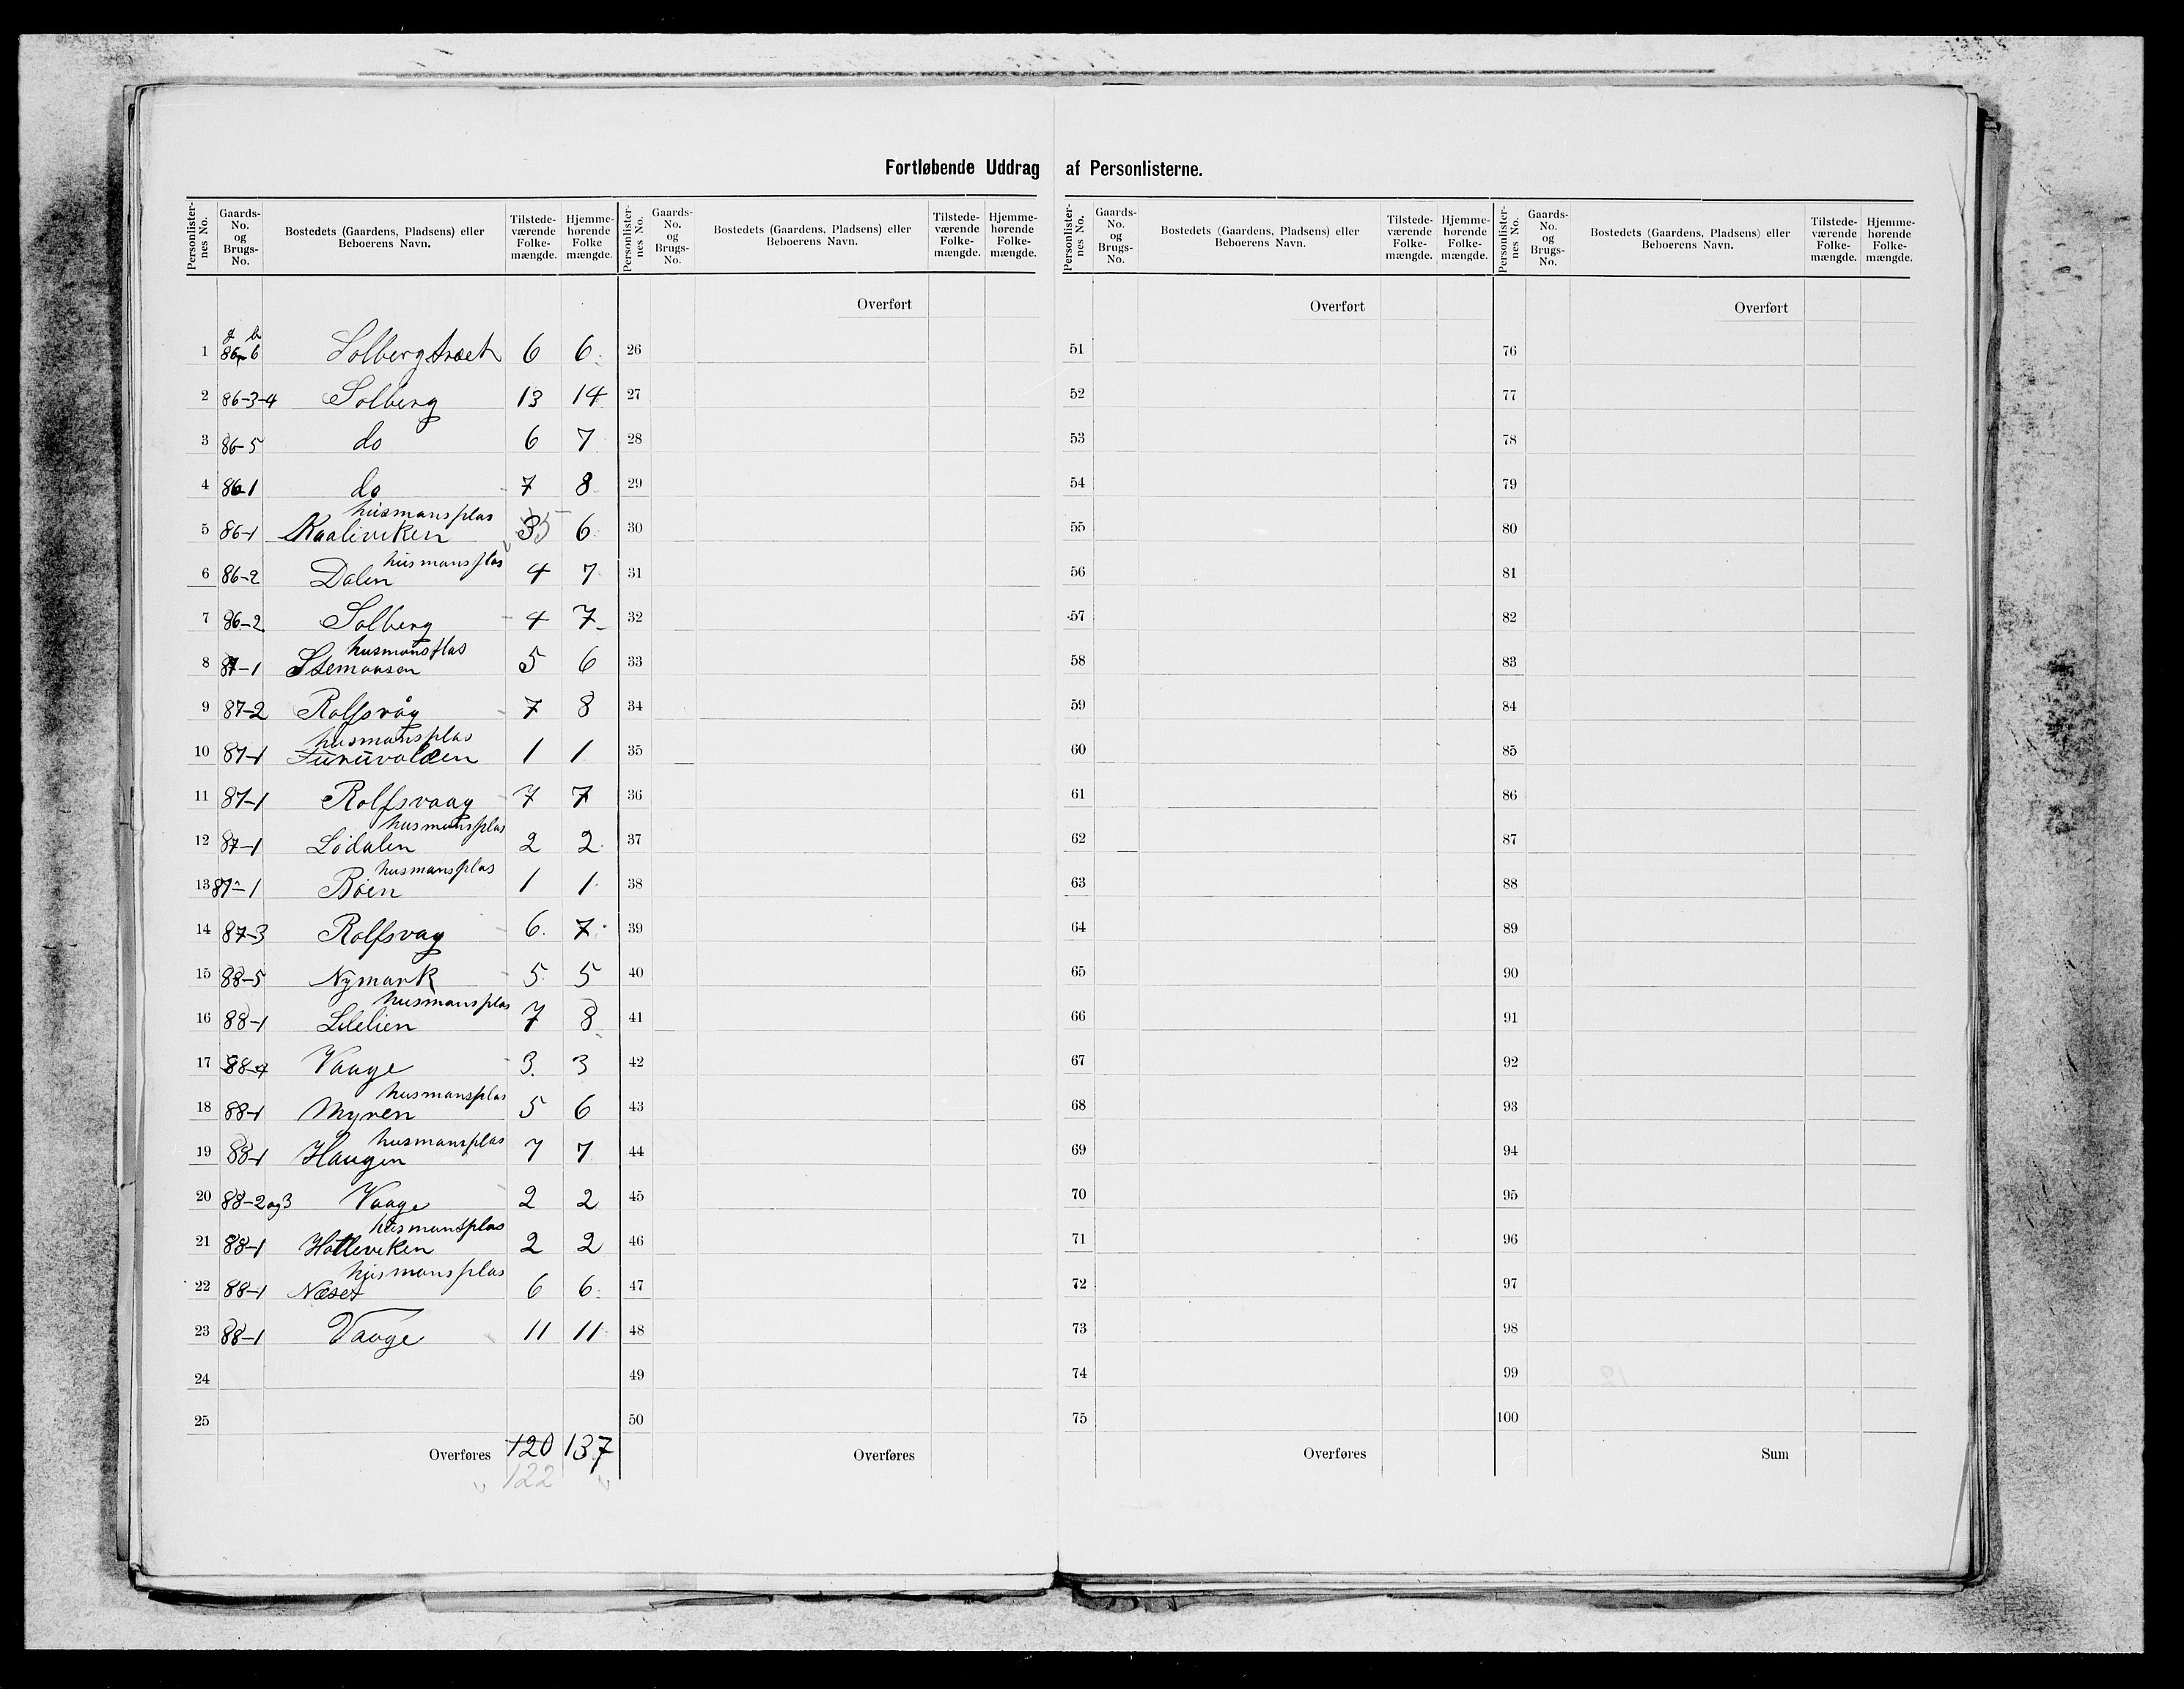 Fortløbende Uddrag af Personlisterne.
Personlisternes No. | Gaards-No. og Brugs-No. | Bostedets (Gaardens, Pladsens) eller Beboerens Navn. | Tilstedeværende Folkemængde. | Hjemmehørende Folkemængde.
g b
1 86-6 Solbergtræet 6 6
2 86-3-4 Solberg 13 14
3 86-5 do 6 7
4 86-1 do 7 8
husmansplas
5 86-1 Kaaliviken 3 5 6
husmansplas
6 86-2 Dalen 4 7
7 86-2 Solberg 4 7
husmansplas
8 87-1 Stemaasen 5 6
9 87-2 Rolfsvåg 7 8
husmansplas
10 87-1 Furuvolden 1 1
11 87-1 Rolfsvaag 7 7
husmansplas
12 87-1 Lødalen 2 2
husmansplas
13 87-1 Bøen 1 1
14 87-3 Rolfsvag 6 7
15 88-5 Nymark 5 5
husmansplas
16 88-1 Lilelien 7 8
17 88-4 Vaage 3 3
husmansplas
18 88-1 Myren 5 6
husmansplas
19 88-1 Haugen 7 7
20 88-2og3 Vaage 2 2
husmansplas
21 88-1 Hatleviken 2 2
husmansplas
22 88-1 Næset 6 6
23 88-1 Vaage 11 11
24
25
Overføres 120 137
122
Personlisternes No. | Gaards-No. og Brugs-No. | Bostedets (Gaardens, Pladsens) eller Beboerens Navn. | Tilstedeværende Folkemængde. | Hjemmehørende Folkemængde.
Overført
26
27
28
29
30
31
32
33
34
35
36
37
38
39
40
41
42
43
44
45
46
47
48
49
50
Overføres
Personlisternes No. | Gaards-No. og Brugs-No. | Bostedets (Gaardens, Pladsens) eller Beboerens Navn. | Tilstedeværende Folkemængde. | Hjemmehørende Folkemængde.
Overført
51
52
53
54
55
56
57
58
59
60
61
62
63
64
65
66
67
68
69
70
71
72
73
74
75
Overføres
Personlisternes No. | Gaards-No. og Brugs-No. | Bostedets (Gaardens, Pladsens) eller Beboerens Navn. | Tilstedeværende Folkemængde. | Hjemmehørende Folkemængde.
Overført
76
77
78
79
80
81
82
83
84
85
86
87
88
89
90
91
92
93
94
95
96
97
98
99
100
Sum